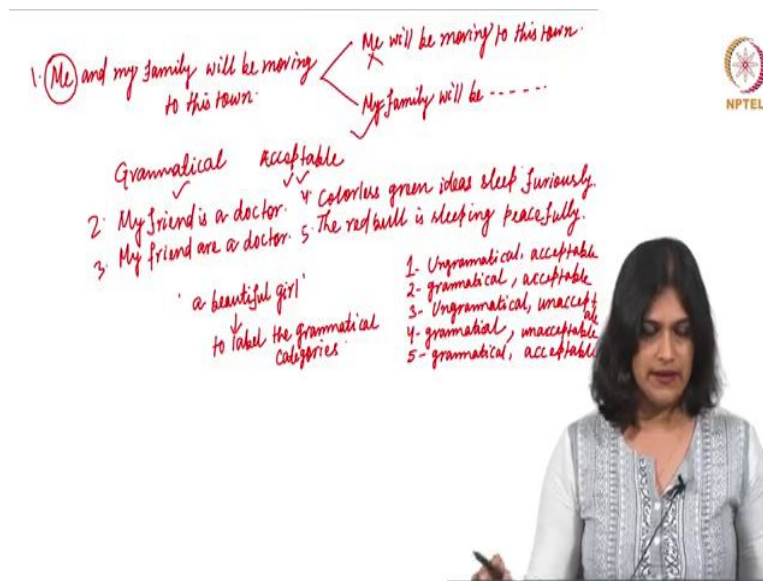 1. Me and my family will be moving
to this town.
Me will be moving to this town.
My family will be ------
NPTEL
Grammatical Acceptable
2. My friend is a doctor.
3. My friend are a doctor.
4. Colorless green ideas sleep furiously.
5. The red bull is sleeping peacefully.
'a beautiful girl'
to label the grammatical
categories.
1- Ungrammatical, acceptable
2- grammatical, acceptable
3- Ungrammatical, unaccept
able
4- grammatial, unacceptable
5- grammatical, acceptable